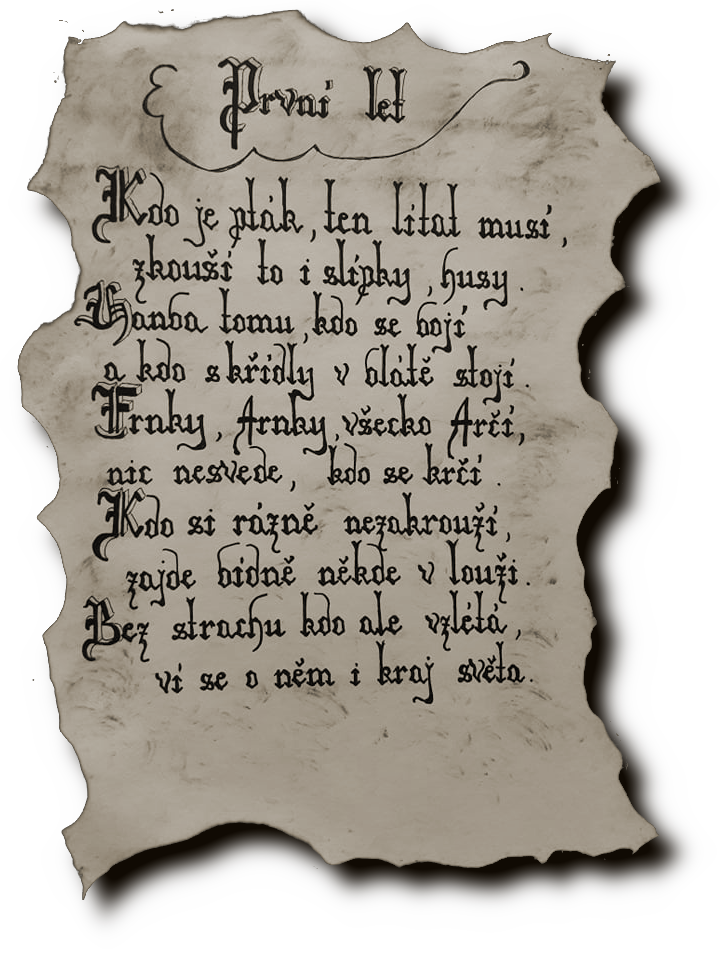 První let
Kdo je pták, ten lítat musí,
zkouší to i slípky, husy.
Hanba tomu, kdo se bojí
a kdo skřídly v blátě stojí.
Frnky, frnky, všecko frčí,
nic nesvede, kdo se krčí.
Kdo si rázně nezakrouží,
zajde bídně někde v louži.
Bez strachu kdo ale vzlétá,
ví se o něm i kraj světa.